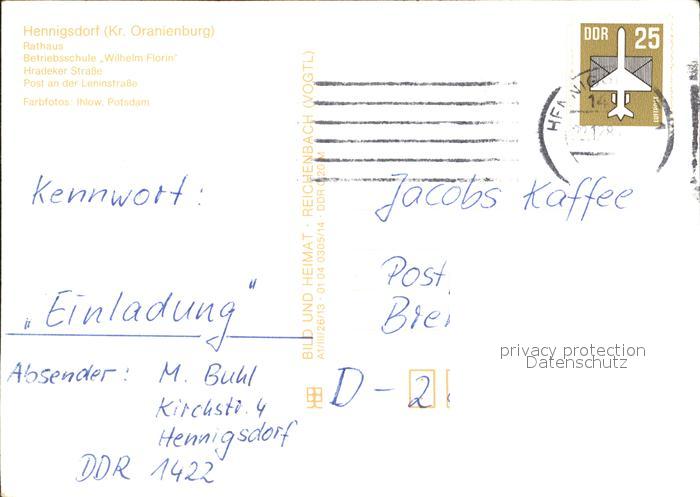 Hennigsdorf (Kr. Oranienburg)
Rathaus
Betriebsschule „Wilhelm Florin"
Hradeker Straße
Post an der Leninstraße
Farbfotos: Ihlow, Potsdam
Kennwort:
„Einladung"
Absender: M. Buhl
Kirchstr. 4
Hennigsdorf
DDR 1422
BILD UND HEIMAT · REICHENBACH (VOGTL)
A1/III/26/13 · 01 04 0305/14 · DDR
DDR 25
LUFTPOST
Jacobs Kaffee
Post
D - 2
privacy protection
Datenschutz